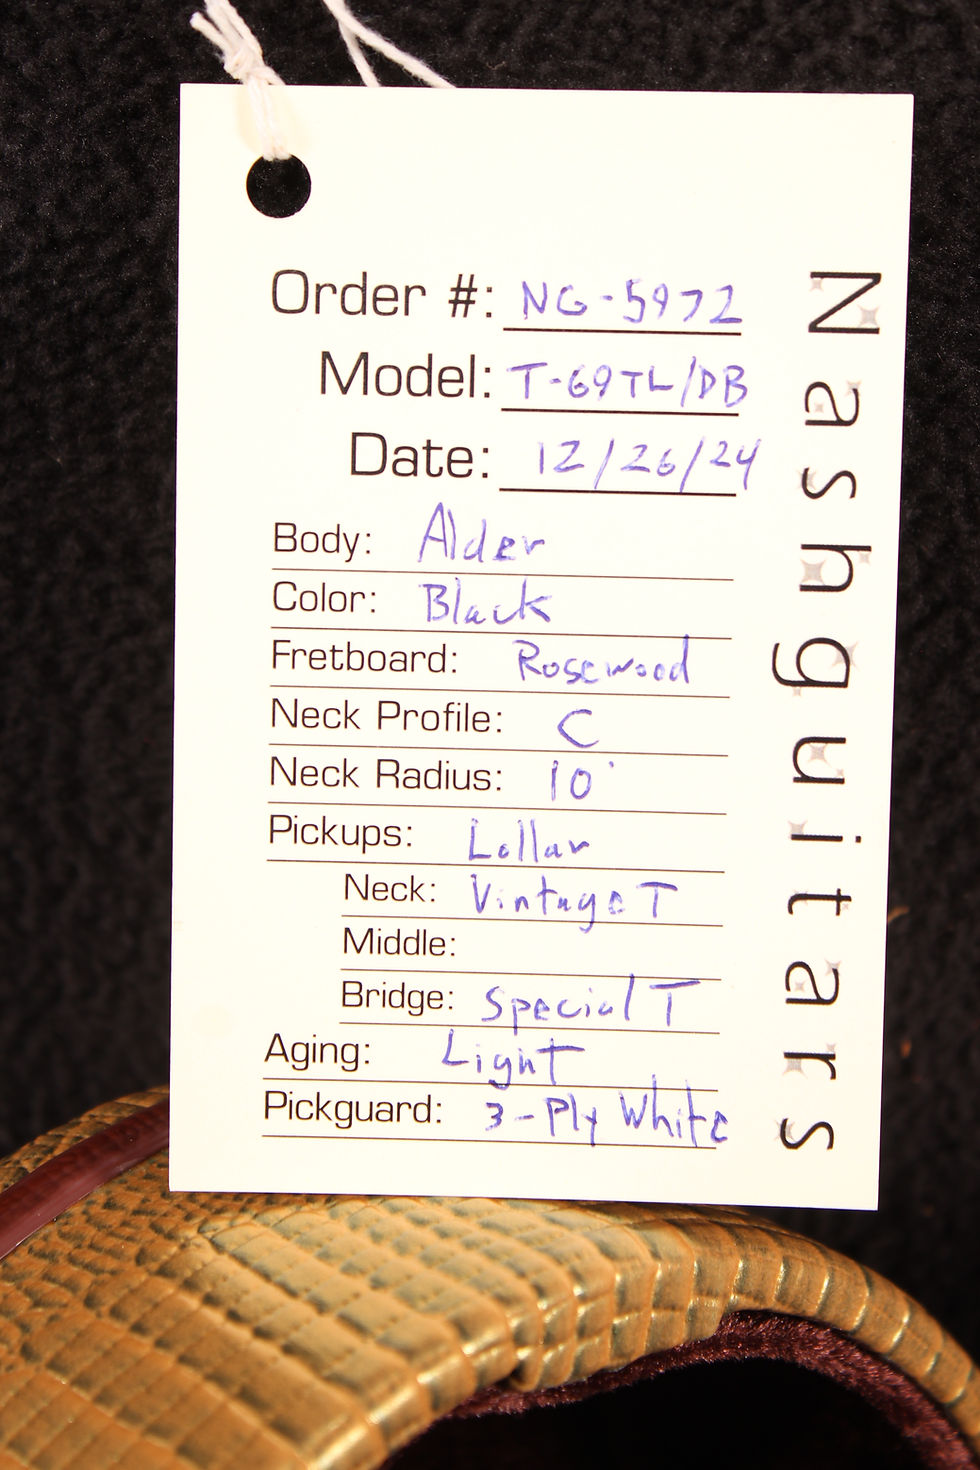 Order #: NG-5972
Model: T-69TL/DB
Date: 12/26/24
Body: Alder
Color: Black
Fretboard: Rosewood
Neck Profile: C
Neck Radius: 10'
Pickups: Lollar
Neck: Vintage T
Middle:
Bridge: Special T
Aging: Light
Pickguard: 3-Ply White
Nashguitars